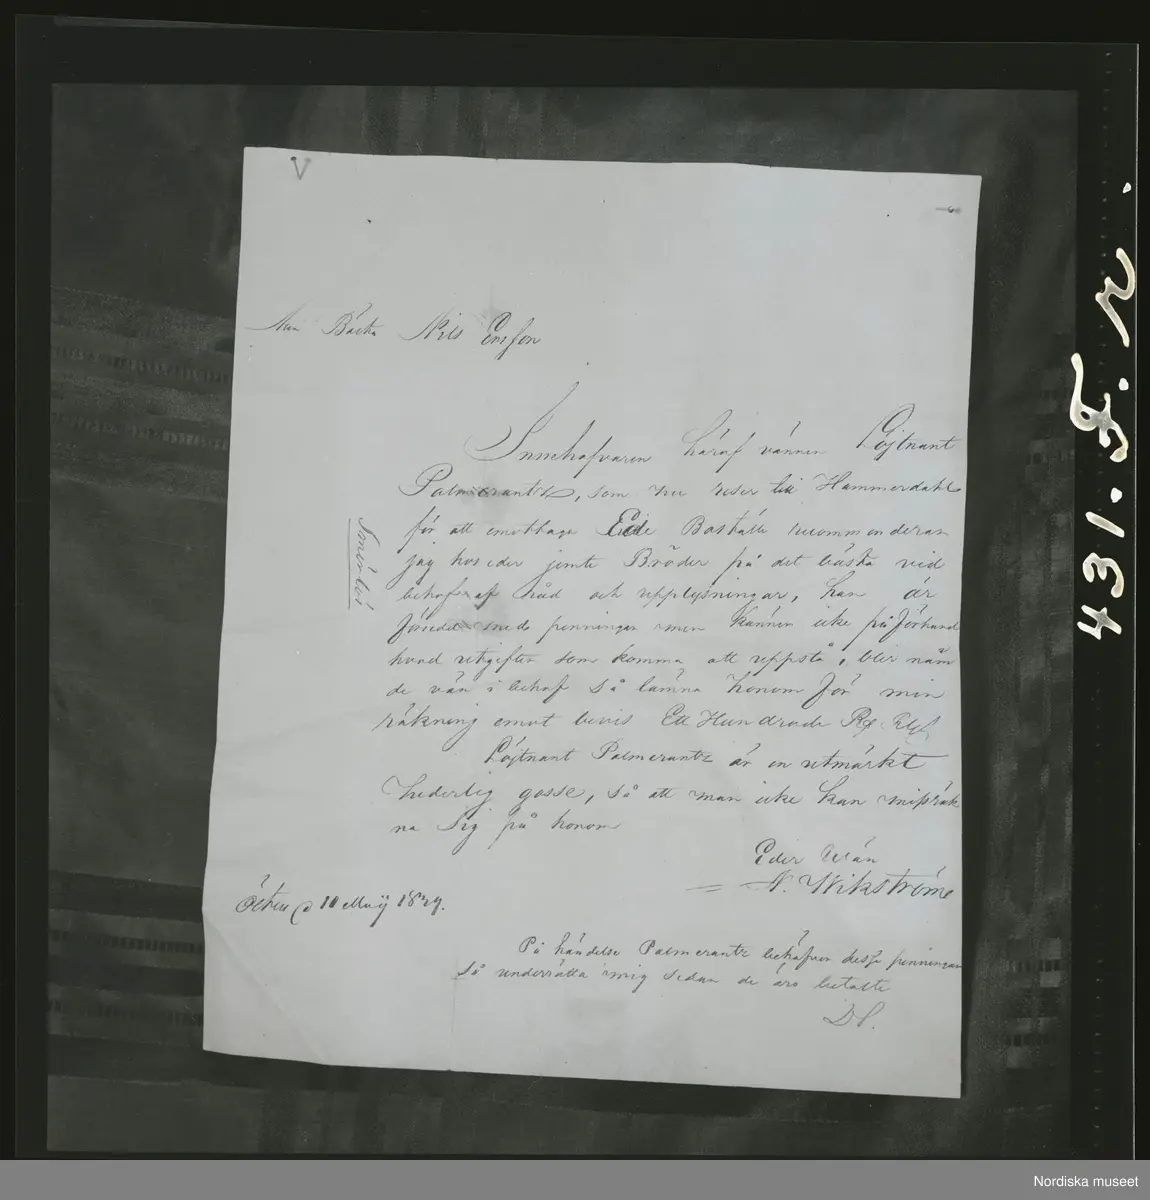 V
Min Bästa Nils Ersson
Innehafvaren häraf vännen Löjtnant
Palmcrantz, som nu reser till Hammerdahl
för att emottaga Ede Boställe recommenderar
jag hos eder jemte Bröder på det bästa vid
behof af råd och upplysningar, han är
försedd med penningar men känner icke på förhand
hvad utgifter som komma att uppstå, blir nåm
de vän i behof så lämna honom för min
räkning emot bevis Ett Hundrade Rd Rgs
Löjtnant Palmcrantz är en utmärkt
hederlig gosse, så att man icke kan missräk
na sig på honom
Eder Wän
N. Wikström
d 10 Maij 1849.
På händelse Palmcrantz behöfver dessa penningar
så underrätta mig sedan de äro betalte
DS.
431. F. r.
Nordiska museet